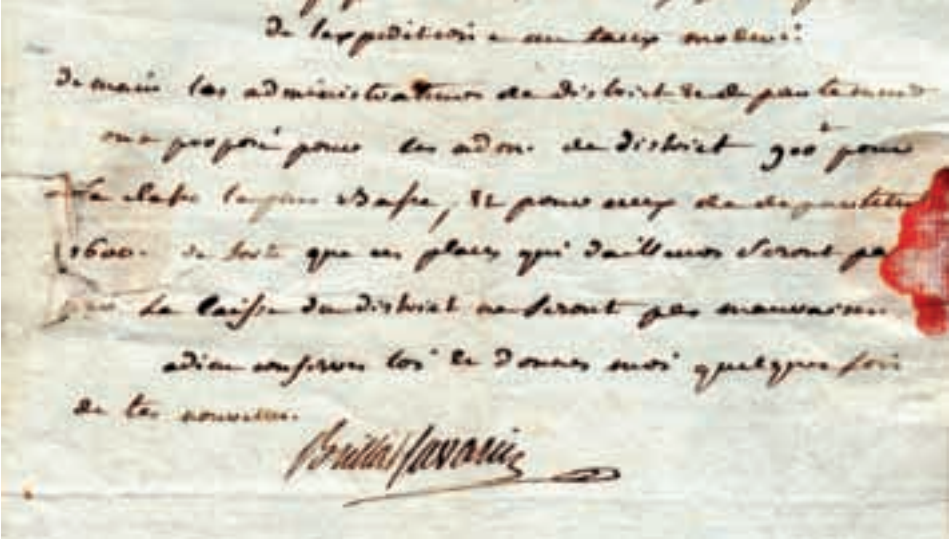 de l'expedition a un taux moderé.
demain les administrateurs de district & de partement
propose pour les adm. de district 900 pour
la classe la plus Basse, & pour ceux de departeme
1600. de sorte que ces places qui d'ailleurs seront pa
par la caisse du district ne seront pas mauvaises
adieu conserves toi & donnes moi quelques fois
de tes nouvelles.
Brillat Savarin